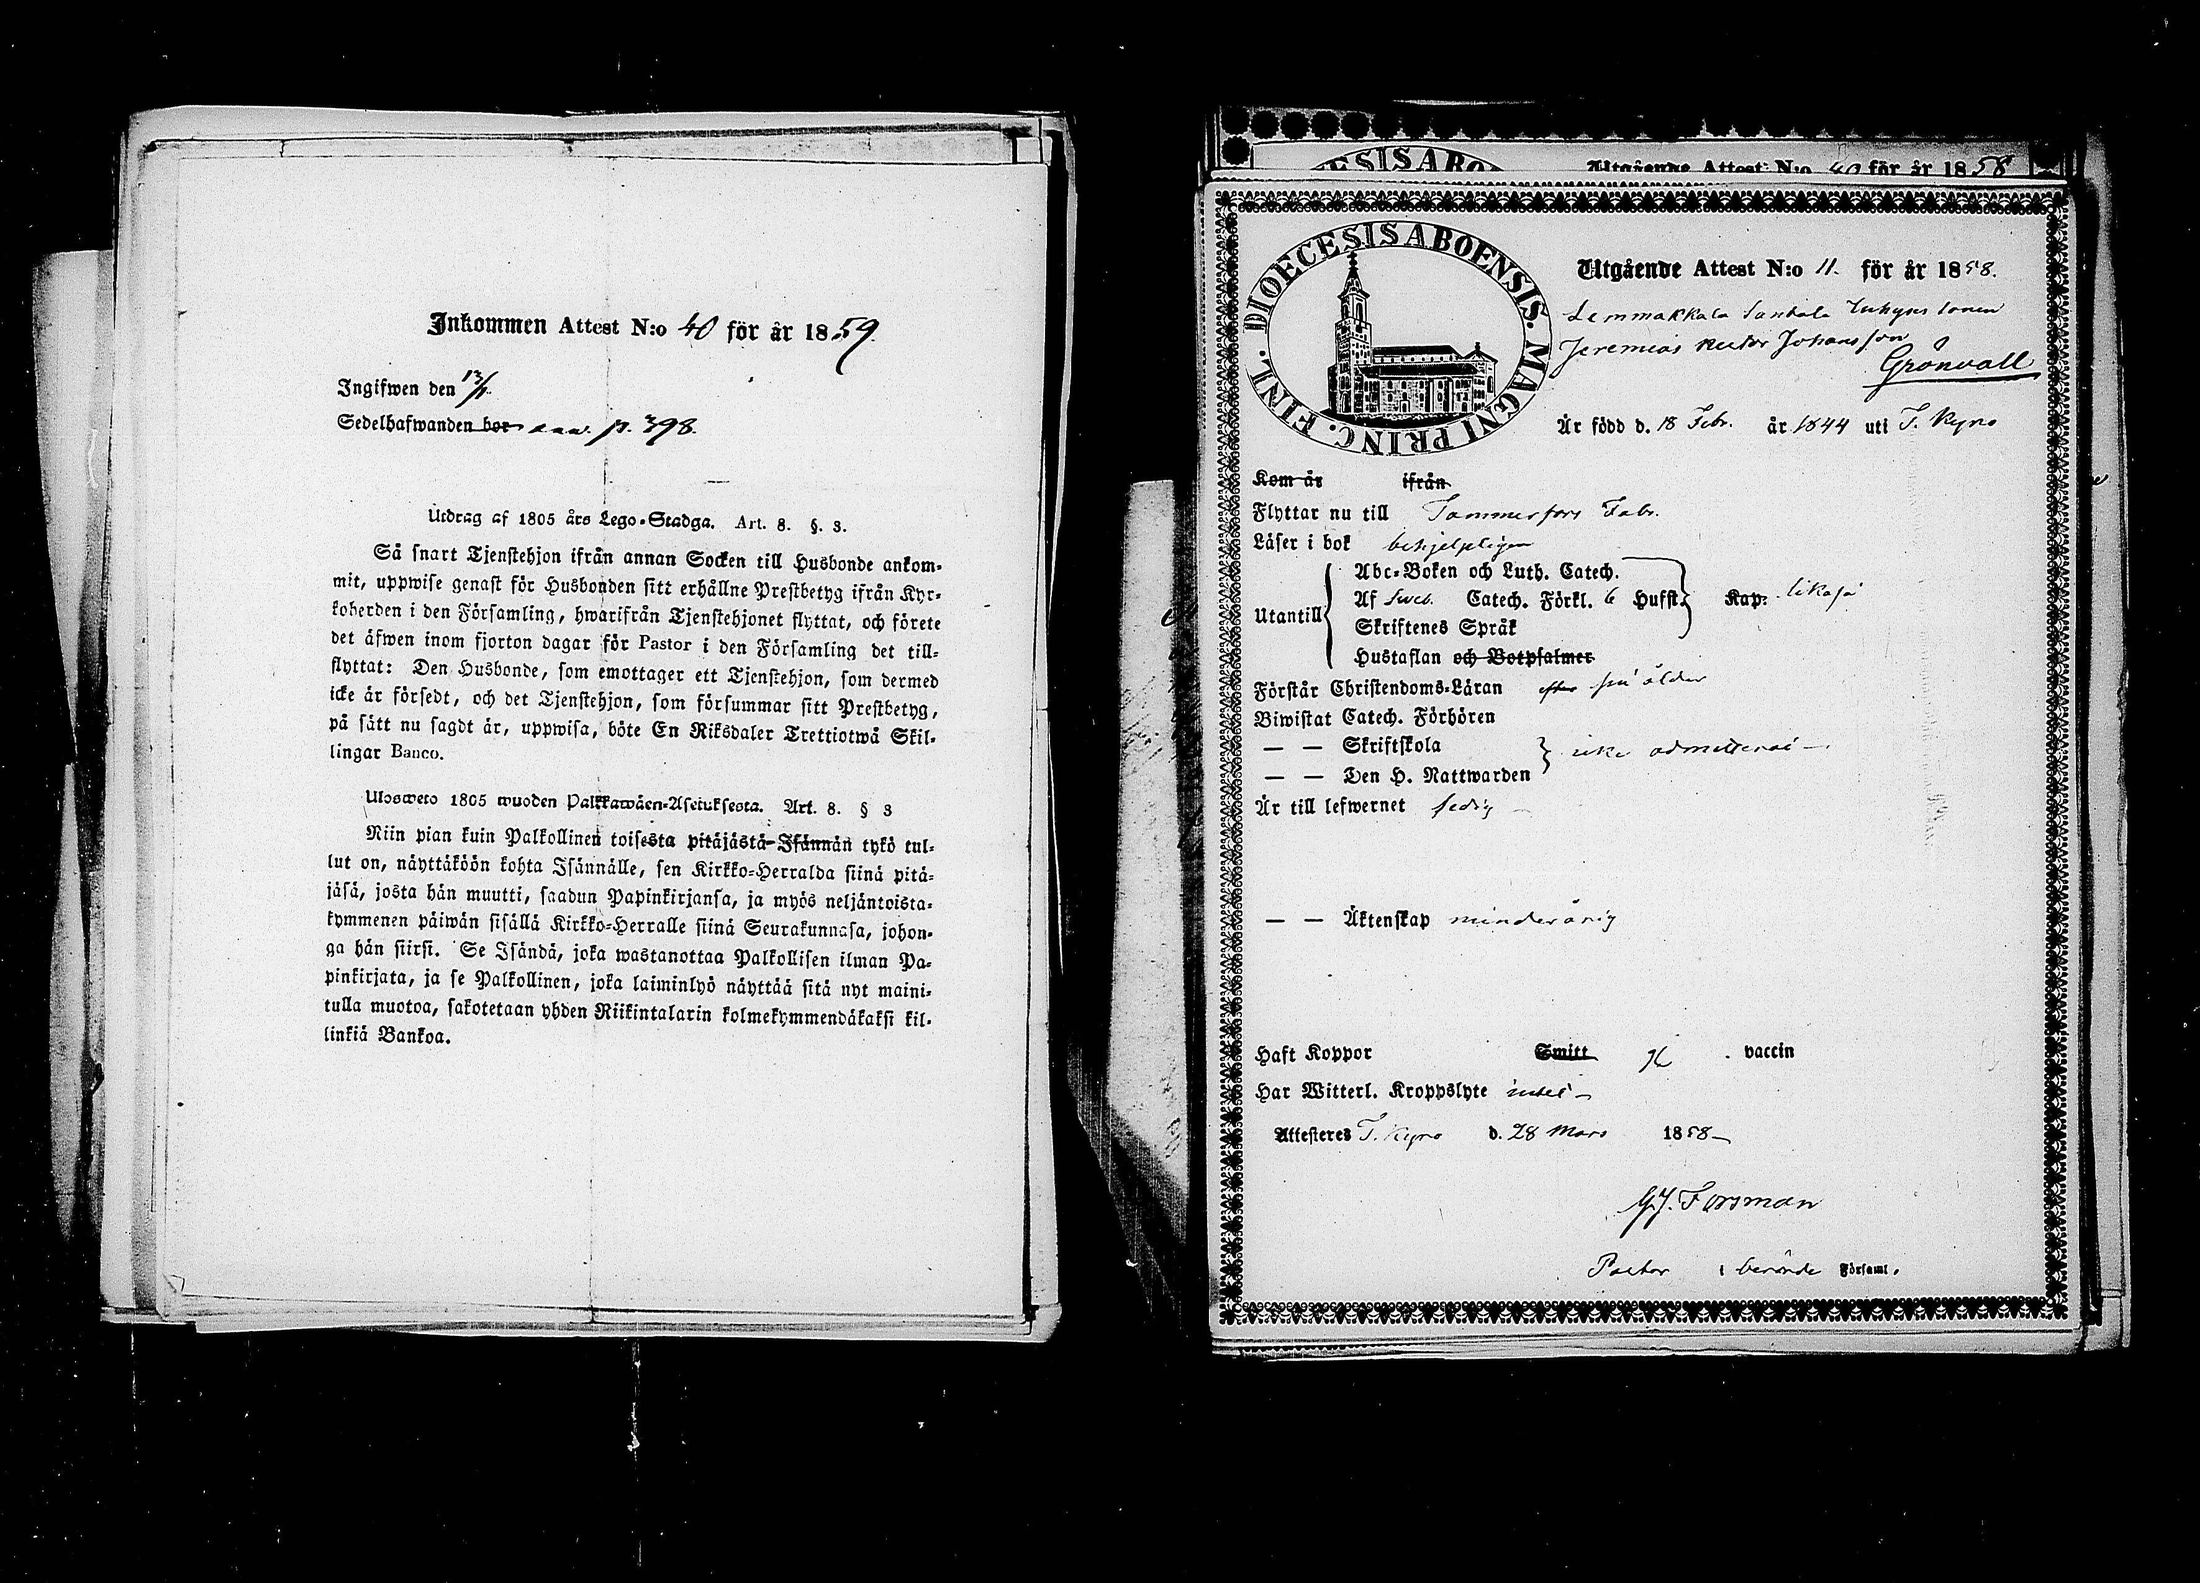 Inkommen Attest N:o 40 för år 1859.
Ingifwen den 13/1.
Sedelhafwanden bor p. 398.
Utdrag af 1805 års Lego-Stadga. Art. 8. §. 3.
Så snart Tjenstehjon ifrån annan Socken till Husbonde ankom-
mit, uppwise genast för Husbonden sitt erhållne Prestbetyg ifrån Kyr-
koherden i den Församling, hwarifrån Tjenstehjonet flyttat, och förete
det äfwen inom fjorton dagar för Pastor i den Församling det till-
flyttat: Den Husbonde, som emottager ett Tjenstehjon, som dermed
icke är försedt, och det Tjenstehjon, som försummar sitt Prestbetyg,
på sätt nu sagdt är, uppwisa, böte En Riksdaler Trettiotwå Skil-
lingar Banco.
Ulosweto 1805 wuoden Palkkawäen-Asetuksesta. Art. 8. § 3
Niin pian kuin Palkollinen toisesta pitäjästä Isännän tykö tul-
lut on, näyttäköön kohta Isännälle, sen Kirkko-Herralda siinä pitä-
jäsä, josta hän muutti, saadun Papinkirjansa, ja myös neljäntoista-
kymmenen päiwän sisällä Kirkko-Herralle siinä Seurakunnasa, johon-
ga hän siirsi. Se Isändä, joka wastanottaa Palkollisen ilman Pa-
pinkirjata, ja se Palkollinen, joka laiminlyö näyttää sitä nyt maini-
tulla muotoa, sakotetaan yhden Riikintalarin kolmekymmendäkaksi kil-
linkiä Bankoa.
ESIS ABO
Utgående Attest N:o 40 för år 1858
DIOECESIS ABOENSIS. MAGNI PRINC. FINL.
Utgående Attest N:o 11. för år 1858.
Lemmakkala Santala Inhyses sonen
Jeremias Johansson
Grönvall
Är född d. 18 Febr. år 1844 uti T. Kyro
Kom år ifrån
Flyttar nu till Tammerfors Fabr.
Läser i bok behjelpligen
Abc-Boken och Luth. Catech.
Utantill Af Sveb. Catech. Förkl. 6 Hufst. Kap: likaså
Skriftenes Språk
Hustaflan och Botpsalmer
Förstår Christendoms-Läran efter sin ålder
Biwistat Catech. Förhören
— — Skriftskola
icke admitterad —
— — Den H. Nattwarden
Är till lefwernet sedig —
— — Äktenskap minderårig
Haft Koppor Smitt vaccin
Har Witterl. Kroppslyte intet —
Attesteres T. Kyro d. 28 Mars 1858 —
G. J. Forsman
Pastor i berörde Församl.